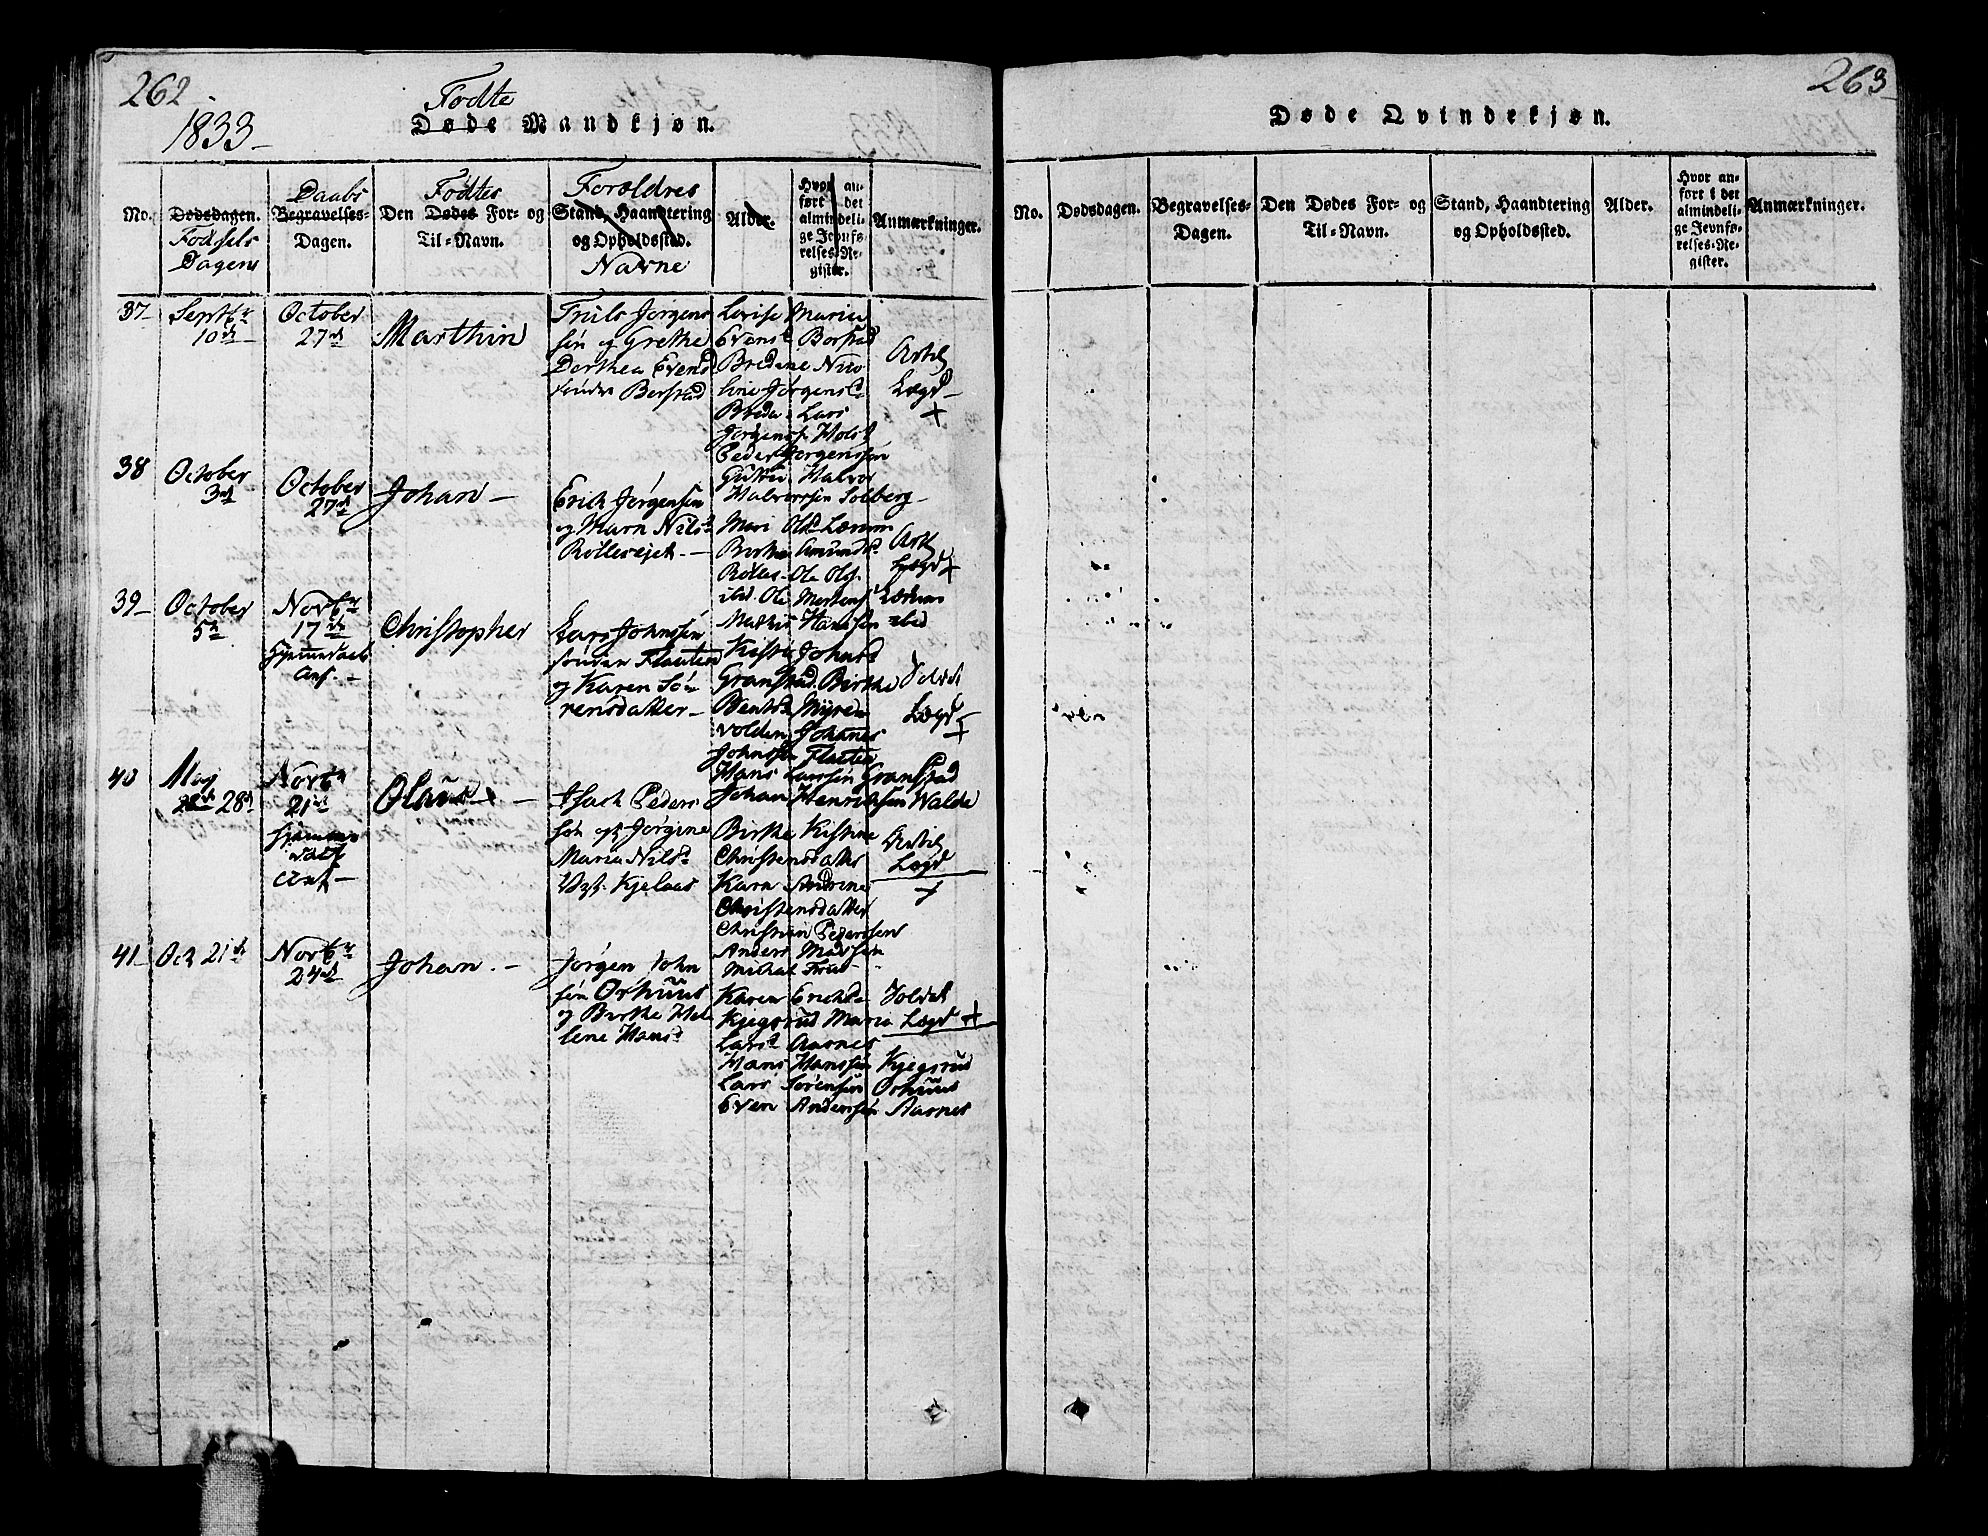 262
1833
Fødte
Døde Mandkjøn.
No.
Dødsdagen.
Fødsels
Dagens
Daabs
Begravelses-
Dagen.
Fødtes
Den Dødes For- og
Til-Navn.
Forældres
Stand, Haandtering
og Opholdssted.
Navne
Alder.
Hvor an-
ført i det
almindeli-
ge Jevnfø-
relses-Re-
gister.
Anmærkninger.
37
Septbr
10de
October
27de
Marthin
Truls Jørgens
søn og Grethe
Dorthea Evens
sønder Berstad
Lovise Maria
Evensd Borstad
Bredine Nico
line Jørgensd
Breda Lars
Jørgens. Holst
Peder Jørgenssøn
Halvor
Halvorssøn Solberg
Artil
Lægd
+
38
October
3de
October
27de
Johan
Erich Jørgensøn
og Marn Nilsd
Röllerejet
Mari Olsd Lærum
Berthe Amundsd.
Rølles Ole Ols.
ibid. Ole Mortens Lærum
Mathis Hanssøn ibid
Art
Lægd +
39
October
5te
Novbr
17de
Hjemmedaab
Anf.
Christopher
Lars Johnssøn
sønder Flauten
og Karen Sø
rensdatter
Kisti Johans
Granstad. Berthe
Bentsd Myren
volden Johanes
Johnssøn Flauten
Hans Larssøn Granstad
Soldat
Lægd
+
40
Maj
28de
Novbr
21de
Hjemme
daab
Anf
Olaus
Isach Peders
søn og Jørgine
Maria Nilsd
Kjelaas
Johan Henrichsen Walde
Birthe Kistine
Christensdatter
Karn Andrine
Christensdatter
Christian Pederssen
Anders Madssen
Michal Frud
Artil
Lægd
+
41
Oct 21de
Novbr
24de
Johan.
Jørgen John
søn Orhuus
og Berthe Hel
lene Hansd
Karen Erichsd
Kjegsrud Maria
Larsd Aarnes
Hans Hanssøn Kjegsrud
Lars Sørensøn Orhuus
Even Anderssøn Aarnes
Soldat
Lægd +
263
Døde Qvindekjøn.
No.
Dødsdagen.
Begravelses-
Dagen.
Den Dødes For- og
Til-Navn.
Stand, Haandtering
og Opholdssted.
Alder.
Hvor an-
ført i det
almindeli-
ge Jevnfø-
relses-Re-
gister.
Anmærkninger.